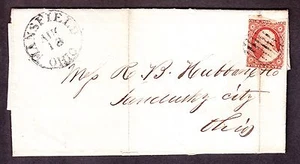 MANSFIELD
18
OHIO
R. B. Hubbard
Sandusky city
Ohio